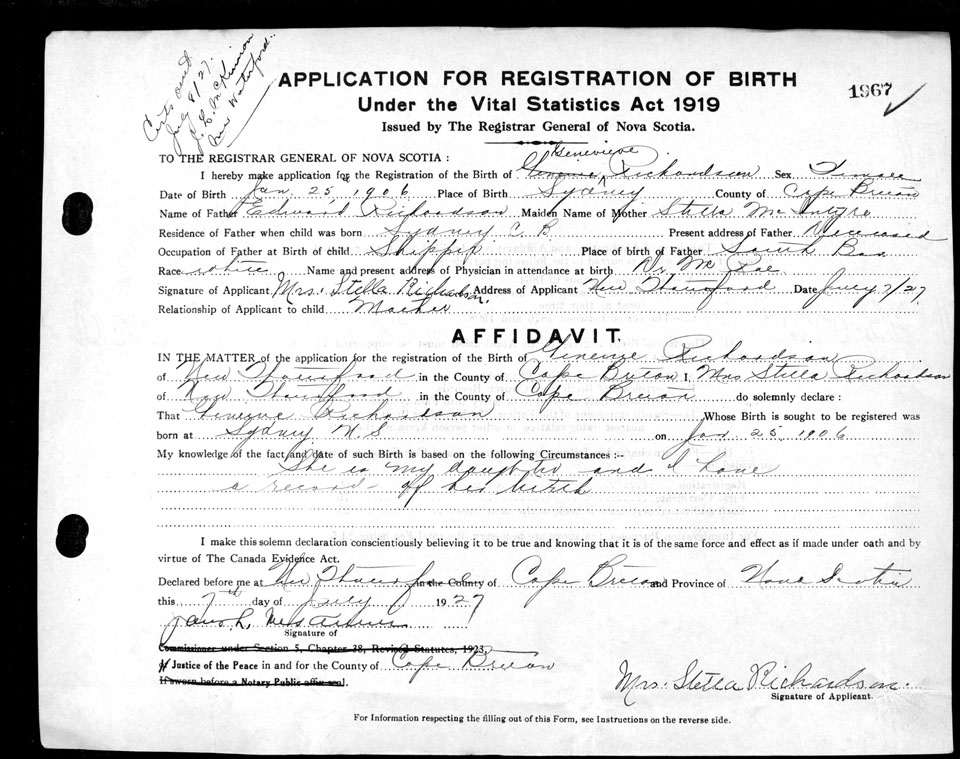 Certs and
July 8/27.
J. L. McKinnon
New Waterford.
APPLICATION FOR REGISTRATION OF BIRTH
Under the Vital Statistics Act 1919
Issued by The Registrar General of Nova Scotia.
1967
TO THE REGISTRAR GENERAL OF NOVA SCOTIA :
Genevieve
I hereby make application for the Registration of the Birth of Richardson Sex Female
Date of Birth Jan. 25, 1906 Place of Birth Sydney County of Cape Breton
Name of Father Edward Richardson Maiden Name of Mother Stella McIntyre
Residence of Father when child was born Sydney C. B. Present address of Father Deceased
Occupation of Father at Birth of child Skipper Place of birth of Father South Bar
Race white Name and present address of Physician in attendance at birth Dr. McRae
Signature of Applicant Mrs. Stella Richardson. Address of Applicant New Waterford Date July 7/27
Relationship of Applicant to child Mother
AFFIDAVIT.
IN THE MATTER of the application for the registration of the Birth of Richardson
of New Waterford in the County of Cape Breton I, Mrs Stella Richardson
of New Waterford in the County of Cape Breton do solemnly declare :
That Richardson Whose Birth is sought to be registered was
born at Sydney N. S on Jan 25, 1906
My knowledge of the fact and date of such Birth is based on the following Circumstances :--
She is my daughter and I have
a record of her birth
I make this solemn declaration conscientiously believing it to be true and knowing that it is of the same force and effect as if made under oath and by
virtue of The Canada Evidence Act.
Declared before me at New Waterford in the County of Cape Breton and Province of Nova Scotia
this 7th day of July 1927
Signature of
Commissioner under Section 5, Chapter 38, Revised Statutes, 1923,
Justice of the Peace in and for the County of Cape Breton
If sworn before a Notary Public affix seal.
Mrs. Stella Richardson.
Signature of Applicant.
For Information respecting the filling out of this Form, see Instructions on the reverse side.